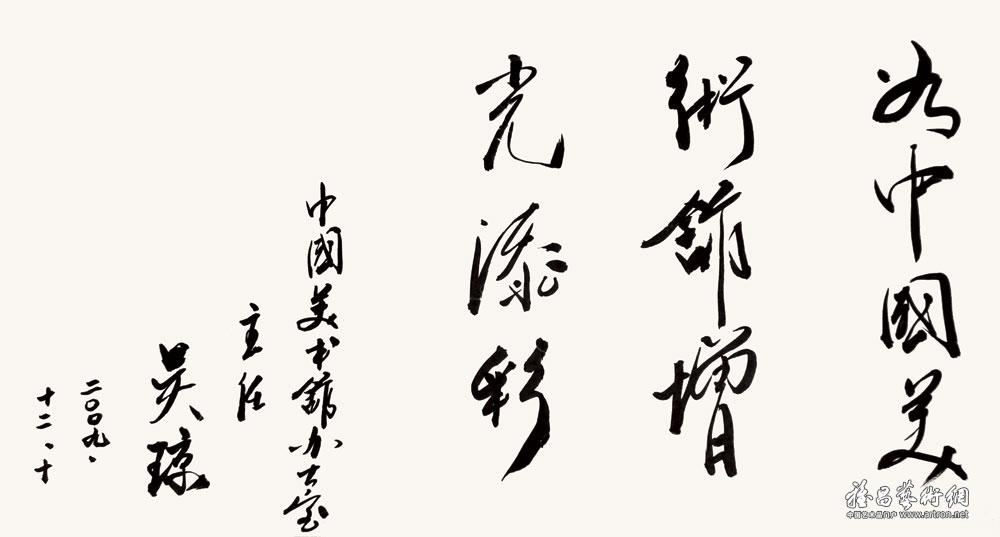 为中國美
術館增
光添彩
中國美术館办公室
主任
吴琼
二〇〇九、
十二、十
雅昌藝術網
中国艺术品门户 www.artron.net